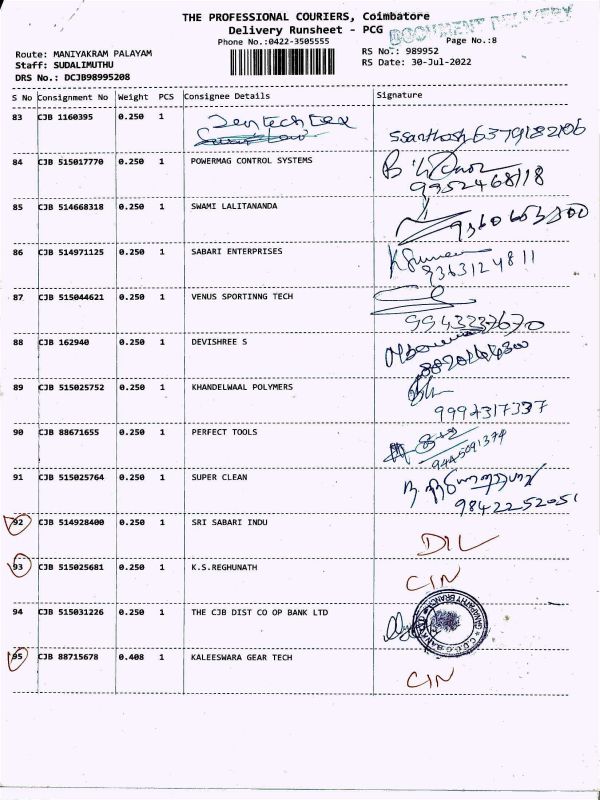 THE PROFESSIONAL COURIERS, Coimbatore
Delivery Runsheet - PCG
DOCUMENT DELIVERY
Phone No.:0422-3505555
Page No.:8
Route: MANIYAKRAM PALAYAM
RS No.: 989952
Staff: SUDALIMUTHU
RS Date: 30-Jul-2022
DRS No.: DCJB98995208
S No Consignment No Weight PCS Consignee Details Signature
83 CJB 1160395 0.250 1
ssanthosh 6379182106
84 CJB 515017770 0.250 1 POWERMAG CONTROL SYSTEMS
9952468118
85 CJB 514668318 0.250 1 SWAMI LALITANANDA
86 CJB 514971125 0.250 1 SABARI ENTERPRISES
9363124811
87 CJB 515044621 0.250 1 VENUS SPORTINNG TECH
9943237670
88 CJB 162940 0.250 1 DEVISHREE S
89 CJB 515025752 0.250 1 KHANDELWAAL POLYMERS
9994317337
90 CJB 88671655 0.250 1 PERFECT TOOLS
9445091379
91 CJB 515025764 0.250 1 SUPER CLEAN
9842252051
92 CJB 514928400 0.250 1 SRI SABARI INDU
DIL
93 CJB 515025681 0.250 1 K.S.REGHUNATH
CIN
94 CJB 515031226 0.250 1 THE CJB DIST CO OP BANK LTD
95 CJB 88715678 0.408 1 KALEESWARA GEAR TECH
CIN